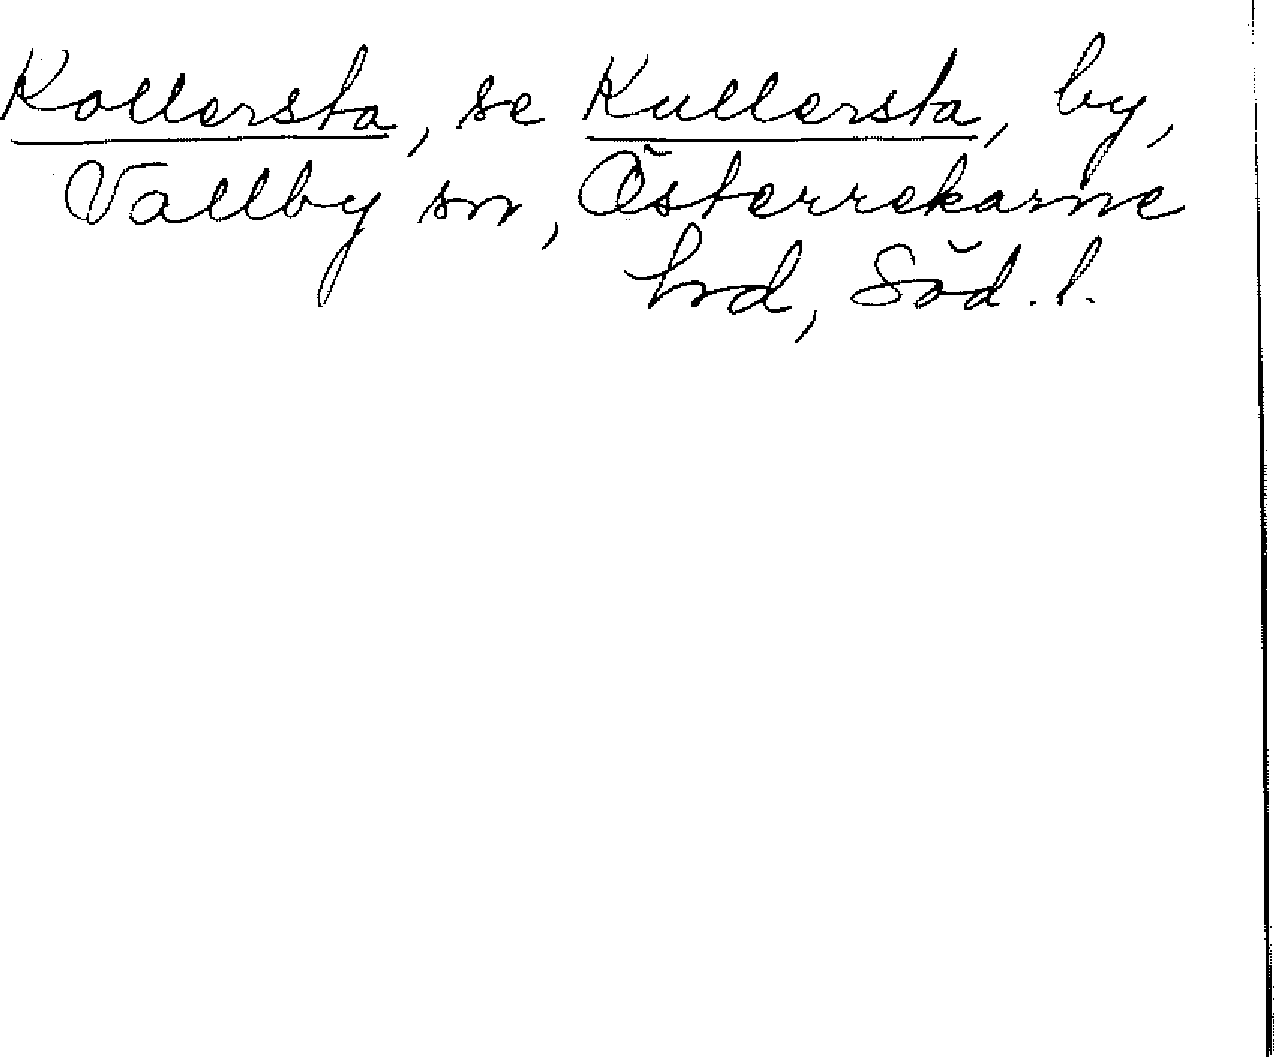 Kollersta, se Kullersta, by,
Vallby sn, Österrekarne
hrd, Söd. l.